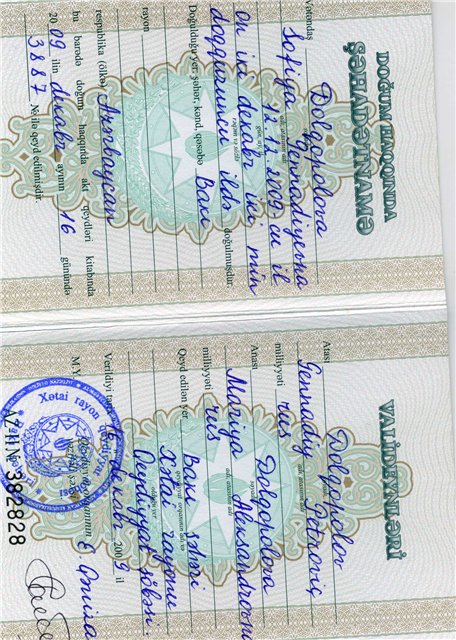 DOĞUM HAQQINDA
ŞƏHADƏTNAMƏ
Vətəndaş Dolqopolova
Sofiya Gennadiyevna
12.12.2009-cu il
on iki dekabr iki min
doqquzuncu ildə doğulmuşdur.
Doğulduğu yer: şəhər, kənd, qəsəbə Bakı
rayon
respublika (ölkə) Azərbaycan
bu barədə doğum haqqında akt qeydləri kitabında
2009 ilin dekabr ayının 16 gününda
3887 № ilə qeyd edilmişdir.
VALİDEYNLƏRİ
Atası Dolqopolov
Gennadiy Petroviç
milliyyəti rus
Anası Dolqopolova
Mariya Aleksandrovna
milliyyəti rus
Qeyd edilən yer Bakı şəhəri
Xətai rayonu
Qeydiyyat şöbəsi.
Verildiyi tarix dekabr 2009 il
M.Y.
Xətai rayon qeydiyyat şöbəsi
AZ-I N 382828